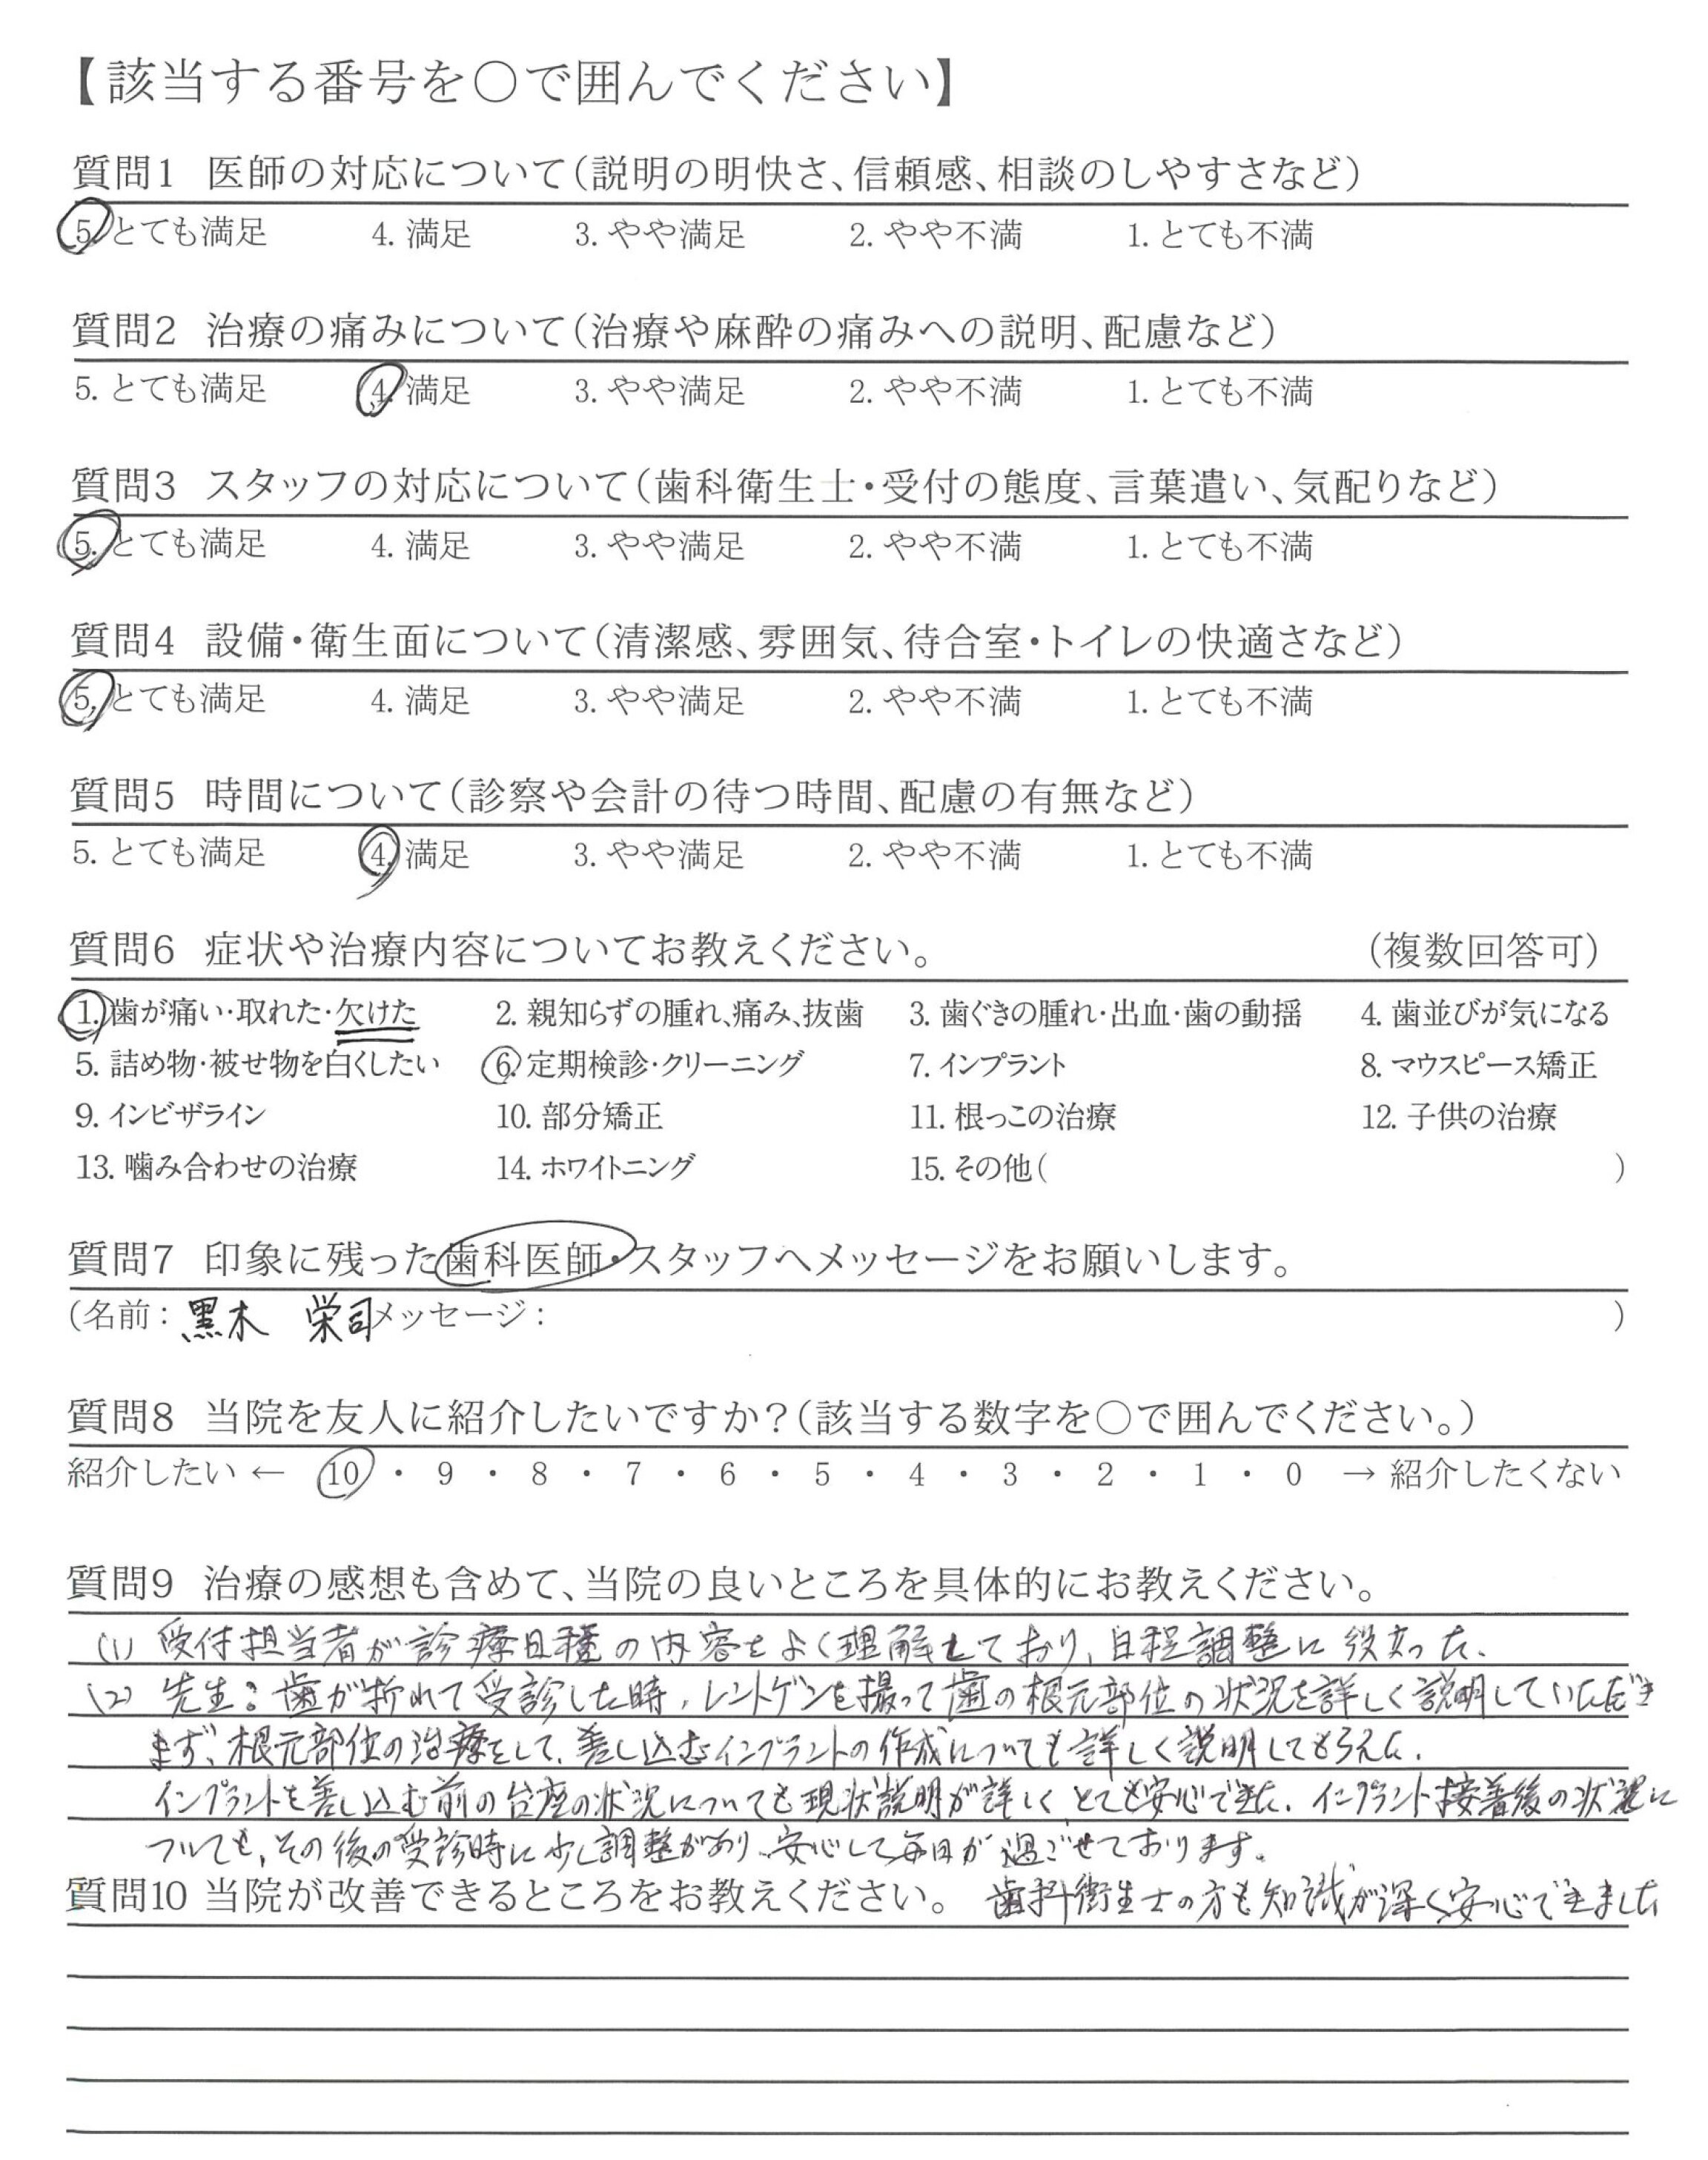 【該当する番号を〇で囲んでください】
質問1 医師の対応について(説明の明快さ、信頼感、相談のしやすさなど)
5. とても満足 4. 満足 3. やや満足 2. やや不満 1. とても不満
質問2 治療の痛みについて(治療や麻酔の痛みへの説明、配慮など)
5. とても満足 4. 満足 3. やや満足 2. やや不満 1. とても不満
質問3 スタッフの対応について(歯科衛生士・受付の態度、言葉遣い、気配りなど)
5. とても満足 4. 満足 3. やや満足 2. やや不満 1. とても不満
質問4 設備・衛生面について(清潔感、雰囲気、待合室・トイレの快適さなど)
5. とても満足 4. 満足 3. やや満足 2. やや不満 1. とても不満
質問5 時間について(診察や会計の待つ時間、配慮の有無など)
5. とても満足 4. 満足 3. やや満足 2. やや不満 1. とても不満
質問6 症状や治療内容についてお教えください。 (複数回答可)
1. 歯が痛い・取れた・欠けた 2. 親知らずの腫れ、痛み、抜歯 3. 歯ぐきの腫れ・出血・歯の動揺 4. 歯並びが気になる
5. 詰め物・被せ物を白くしたい 6. 定期検診・クリーニング 7. インプラント 8. マウスピース矯正
9. インビザライン 10. 部分矯正 11. 根っこの治療 12. 子供の治療
13. 噛み合わせの治療 14. ホワイトニング 15. その他( )
質問7 印象に残った歯科医師・スタッフへメッセージをお願いします。
(名前: 黒木 栄司 メッセージ: )
質問8 当院を友人に紹介したいですか?(該当する数字を〇で囲んでください。)
紹介したい ← 10 ・ 9 ・ 8 ・ 7 ・ 6 ・ 5 ・ 4 ・ 3 ・ 2 ・ 1 ・ 0 → 紹介したくない
質問9 治療の感想も含めて、当院の良いところを具体的にお教えください。
(1) 受付担当者が診療目種の内容をよく理解しており、日程調整に役立った。
(2) 先生:歯が折れて受診した時、レントゲンを撮って歯の根元部位の状況を詳しく説明していただき
まず、根元部位の治療をして、差し込むインプラントの作成についても詳しく説明してもらえた。
インプラントを差し込む前の台座の状況についても現状説明が詳しくとても安心できた。インプラント接着後の状況に
ついても、その後の受診時に少し調整があり、安心して毎日が過ごせております。
質問10 当院が改善できるところをお教えください。 歯科衛生士の方も知識が深く安心できました